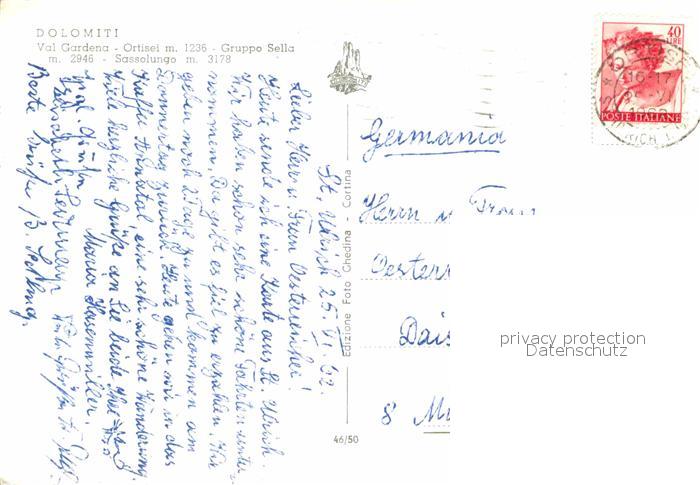 DOLOMITI
Val Gardena - Ortisei m. 1236 - Gruppo Sella
m. 2946 - Sassolungo m. 3178
St. Ulrich 25. VI. 62.
Lieber Herr u. Frau Oesterreicher!
Heute sende ich eine Karte aus St. Ulrich.
Wir haben schon sehr schöne Fahrten unter-
nommen. Da gibt es viel zu erzählen. Wir
gehen noch 2 Tage und kommen am
Donnerstag zurück. Heute gehen wir in das
eine sehr schöne Wanderung.
Viele herzliche Grüße an Sie beide Ihre
Maria Hasenmiller.
Viele Grüße
Beste Grüße B.
Edizione Foto Ghedina - Cortina
46/50
40
LIRE
POSTE ITALIANE
16-17
Germania
Herrn u Frau
Oesterr
Dais
8 Mü
privacy protection
Datenschutz